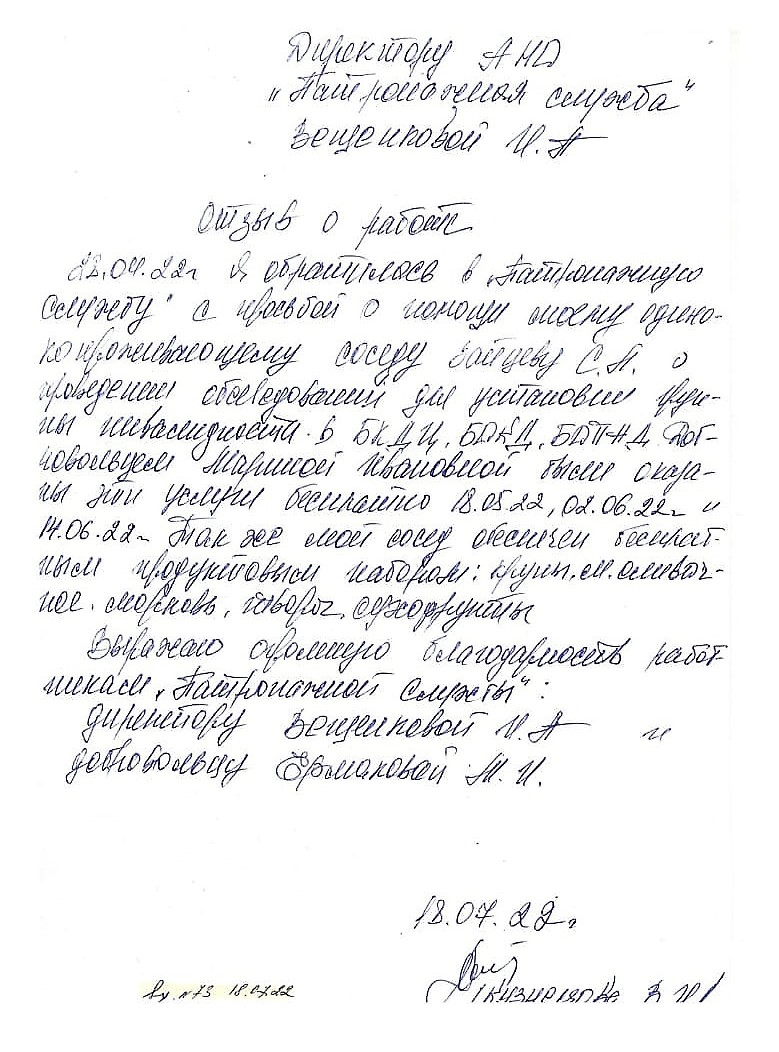 Директору АНО
"Патронажная служба"
Вощенковой И.А
Отзыв о работе
22.04.22г Я обратилась в "Патронажную
службу" с просьбой о помощи моему одино-
ко проживающему соседу Зайцеву С.А. о
проведении обследований для установки груп-
пы инвалидности. в БКДЦ, БОКД, БОПНД Доб-
ровольцем Мариной Ивановной были оказа-
ны эти услуги бесплатно 18.05.22, 02.06.22г и
14.06.22г Так же мой сосед обеспечен бесплат-
ным продуктовым набором: крупы, м. сливоч-
ное. морковь, творог, сухофрукты
Выражаю огромную благодарность работ-
никам "Патронажной службы":
директору Вощенковой И.А и
добровольцу Ермаковой М.И.
18.07.22г
Вх. №73 18.07.22